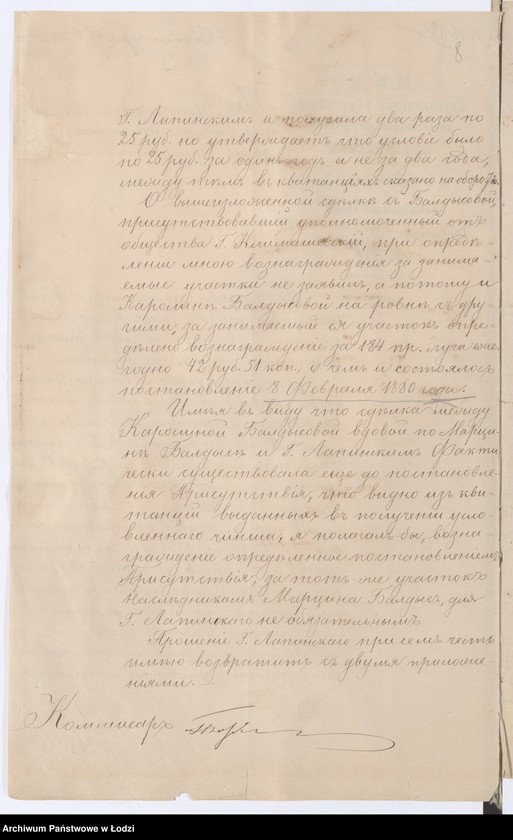 8
Г. Лапинскимъ и получила два раза по
25 руб. но утверждаетъ что условіе было
по 25 руб. за одинъ годъ а не за два года,
между тѣмъ въ квитанціяхъ сказано на оборотъ.
О вышеизложенной сдѣлкѣ съ Балдысовой,
присутствовавшій уполномоченный отъ
общества Г. Климашевскій, при опредѣ-
леніи мною вознагражденія за занима-
емые участки не заявилъ, а потому и
Каролинѣ Балдысовой на ровнѣ съ дру-
гими, за занимаемый ея участокъ опре-
дѣлено вознагражденіе за 184 пр. луга еже-
годно 42 руб. 51 коп., о чемъ и состоялось
постановленіе 8 Февраля 1880 года.
Имѣя въ виду что сдѣлка между
Каролиной Балдысовой вдовой по Марци-
нѣ Балдысъ и Г. Лапинскимъ факти-
чески существовала еще до постановле-
нія Присутствія, что видно изъ кви-
танцій выданныхъ въ полученіи усло-
вленнаго чинша, я полагалъ-бы, возна-
гражденіе опредѣленное постановленіемъ
Присутствія, за тотъ же участокъ
наслѣдникамъ Марцина Балдысъ, для
Г. Лапинскаго не обязательнымъ
Прошеніе Г. Лапинскаго при семъ честь
имѣю возвратить съ двумя приложе-
ніями.
Коммисаръ
Archiwum Państwowe w Łodzi